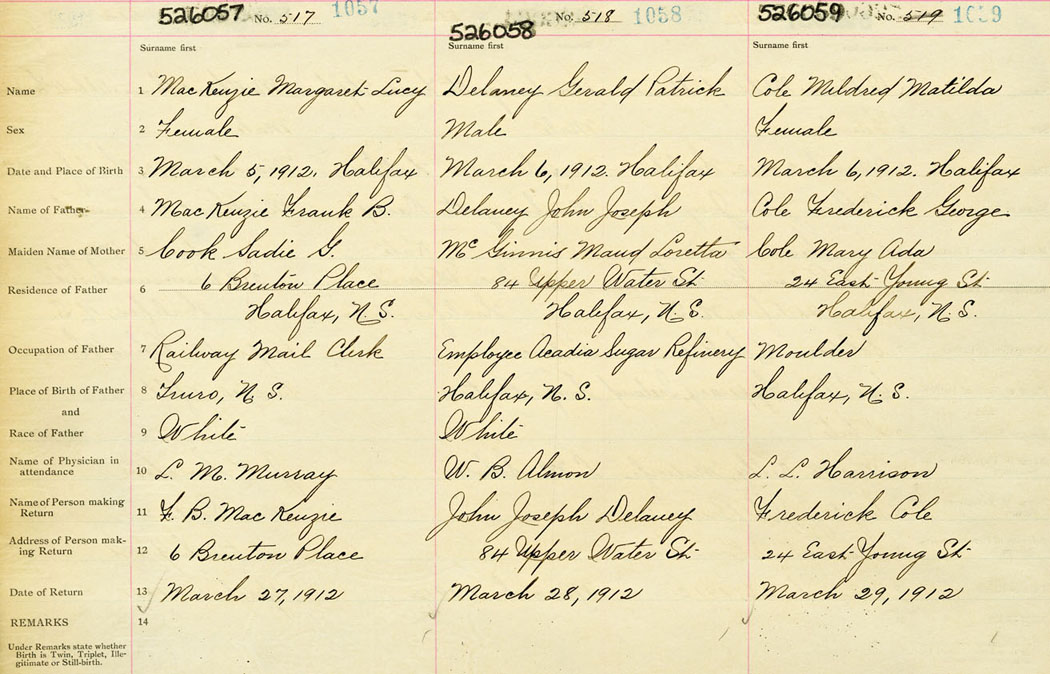 526057 No. 517 1057
526058 No. 518 1058
526059 No. 519 1059
Surname first
Surname first
Surname first
Name 1 MacKenzie Margaret Lucy Delaney Gerald Patrick Cole Mildred Matilda
Sex 2 Female Male Female
Date and Place of Birth 3 March 5, 1912. Halifax March 6, 1912. Halifax March 6, 1912. Halifax
Name of Father 4 MacKenzie Frank B. Delaney John Joseph Cole Frederick George
Maiden Name of Mother 5 Cook Sadie G. McGinnis Maud Loretta Cole Mary Ada
Residence of Father 6 6 Brenton Place 84 Upper Water St 24 East Young St
Halifax, N.S. Halifax, N.S. Halifax, N.S.
Occupation of Father 7 Railway Mail Clerk Employee Acadia Sugar Refinery Moulder
Place of Birth of Father 8 Truro, N.S. Halifax, N.S. Halifax, N.S.
and
Race of Father 9 White White
Name of Physician in
attendance 10 L. M. Murray W. B. Almon L. L. Harrison
Name of Person making
Return 11 F. B. MacKenzie John Joseph Delaney Frederick Cole
Address of Person mak-
ing Return 12 6 Brenton Place 84 Upper Water St 24 East Young St
Date of Return 13 March 27, 1912 March 28, 1912 March 29, 1912
REMARKS 14
Under Remarks state whether
Birth is Twin, Triplet, Ille-
gitimate or Still-birth.